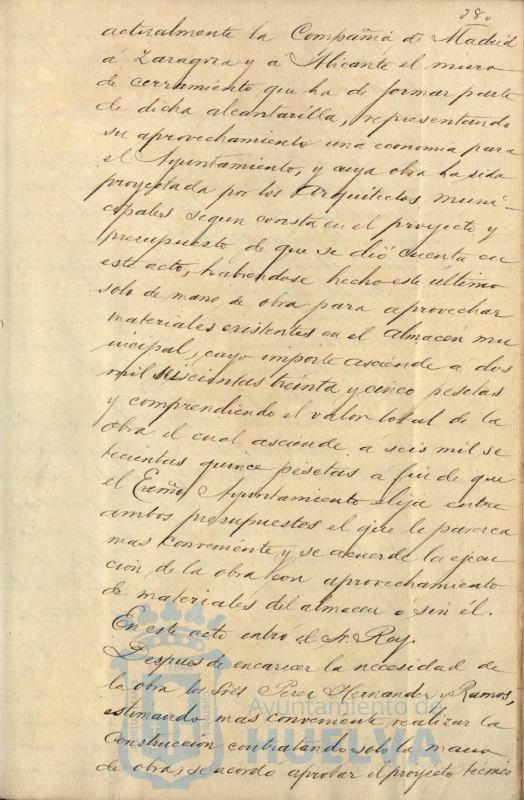 28.
actualmente la Compañia de Madrid
á Zaragoza y a Alicante el muro
de cerramiento que ha de formar parte
de dicha alcantarilla, representando
su aprovechamiento una economia para
el Ayuntamiento, y cuya obra ha sido
proyectada por los Arquitectos muni-
cipales segun consta en el proyecto y
presupuesto de que se dió cuenta en
este acto, habiendose hecho este último
solo de mano de obra para aprovechar
materiales existentes en el almacen mu
nicipal, cuyo importe asciende a dos
mil seiscientas treinta y cinco pesetas
y comprendiendo el valor total de la
obra el cual asciende a seis mil se
tecientas quince pesetas a fin de que
el Excmo Ayuntamiento elija entre
ambos presupuestos el que le parezca
mas conveniente y se acuerde la ejecu
cion de la obra con aprovechamiento
de materiales del almacen ó sin él.
En este acto entró el Sr. Rey.
Despues de encarecer la necesidad de
la obra los Srés Perez Hernandez y Ramos,
estimando mas conveniente realizar la
construccion contratando solo la mano
de obra, se acordó aprobar el proyecto técnico
Ayuntamiento de
HUELVA